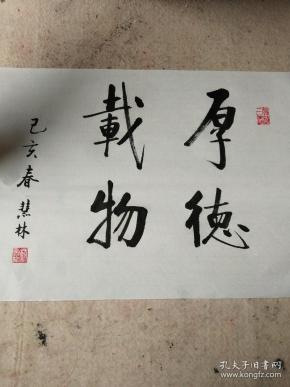 厚德
載物
己亥春慧林
孔夫子旧书网